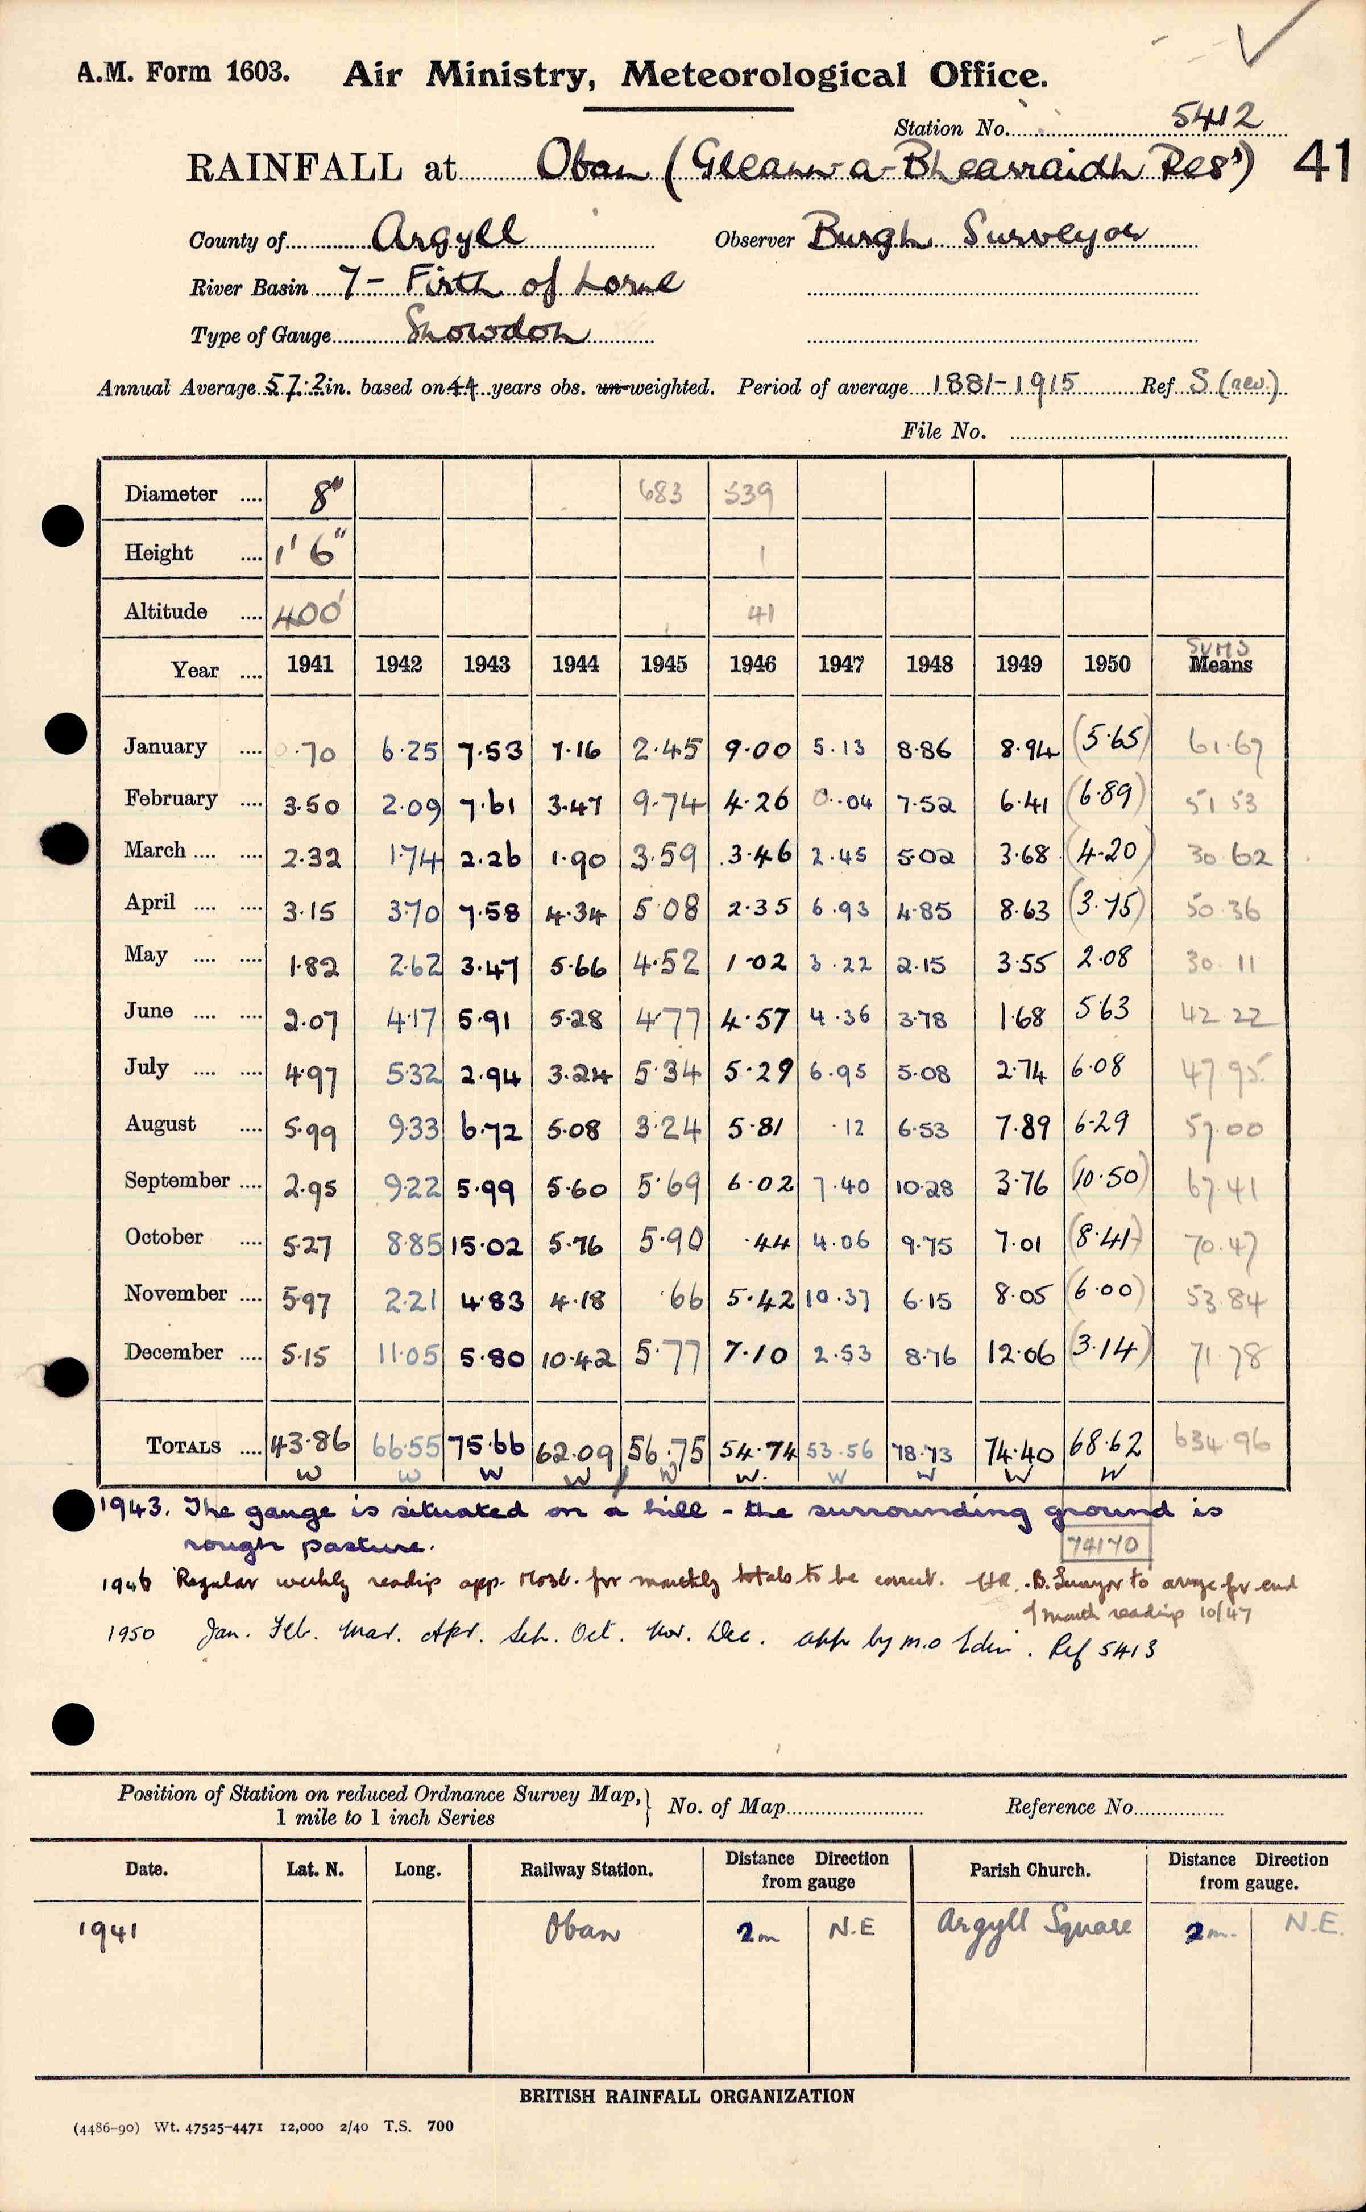 A.M. Form 1603. Air Ministry, Meteorological Office.
Station No. 5412
RAINFALL at Oban (Gleann-a-Bhearraidh Resr) 41
County of Argyll Observer Burgh Surveyor
River Basin 7 - Firth of Lorne
Type of Gauge Snowdon
Annual Average 57.2 in. based on 44 years obs. un-weighted. Period of average 1881-1915 Ref. S (rev.)
File No.
Diameter .... 8" 683 539
Height .... 1' 6" 1
Altitude .... 400' 41
SUMS
Year .... 1941 1942 1943 1944 1945 1946 1947 1948 1949 1950 Means
January .... 0.70 6.25 7.53 7.16 2.45 9.00 5.13 8.86 8.94 (5.65) 61.67
February .... 3.50 2.09 7.61 3.47 9.74 4.26 0.04 7.52 6.41 (6.89) 51 53
March .... .... 2.32 1.74 2.26 1.90 3.59 3.46 2.45 5.02 3.68 (4.20) 30.62
April .... .... 3.15 3.70 7.58 4.34 5.08 2.35 6.93 4.85 8.63 (3.75) 50.36
May .... .... 1.82 2.62 3.47 5.66 4.52 1.02 3.22 2.15 3.55 2.08 30.11
June .... .... 2.07 4.17 5.91 5.28 4.77 4.57 4.36 3.78 1.68 5.63 42.22
July .... .... 4.97 5.32 2.94 3.24 5.34 5.29 6.95 5.08 2.74 6.08 47.95
August .... 5.99 9.33 6.72 5.08 3.24 5.81 .12 6.53 7.89 6.29 57.00
September .... 2.95 9.22 5.99 5.60 5.69 6.02 7.40 10.28 3.76 (10.50) 67.41
October .... 5.27 8.85 15.02 5.76 5.90 .44 4.06 9.75 7.01 (8.41) 70.47
November .... 5.97 2.21 4.83 4.18 .66 5.42 10.37 6.15 8.05 (6.00) 53.84
December .... 5.15 11.05 5.80 10.42 5.77 7.10 2.53 8.76 12.06 (3.14) 71.78
TOTALS .... 43.86 66.55 75.66 62.09 56.75 54.74 53.56 78.73 74.40 68.62 634.96
W W W W W W. W W W W
1943. The gauge is situated on a hill - the surrounding ground is
rough pasture.
74170
1946 Regular weekly readings app. Most. for monthly totals to be correct. B. Surveyor to arrange for end
of month readings 10/47
1950 Jan. Feb. Mar. Apr. Sep. Oct. Nov. Dec. app by M.O Edin. Ref 5413
Position of Station on reduced Ordnance Survey Map,} No. of Map Reference No.
1 mile to 1 inch Series
Date. Lat. N. Long. Railway Station. Distance Direction from gauge Parish Church. Distance Direction from gauge.
1941 Oban 2m N.E Argyll Square 2m. N.E.
BRITISH RAINFALL ORGANIZATION
(4486-90) Wt. 47525-4471 12,000 2/40 T.S. 700